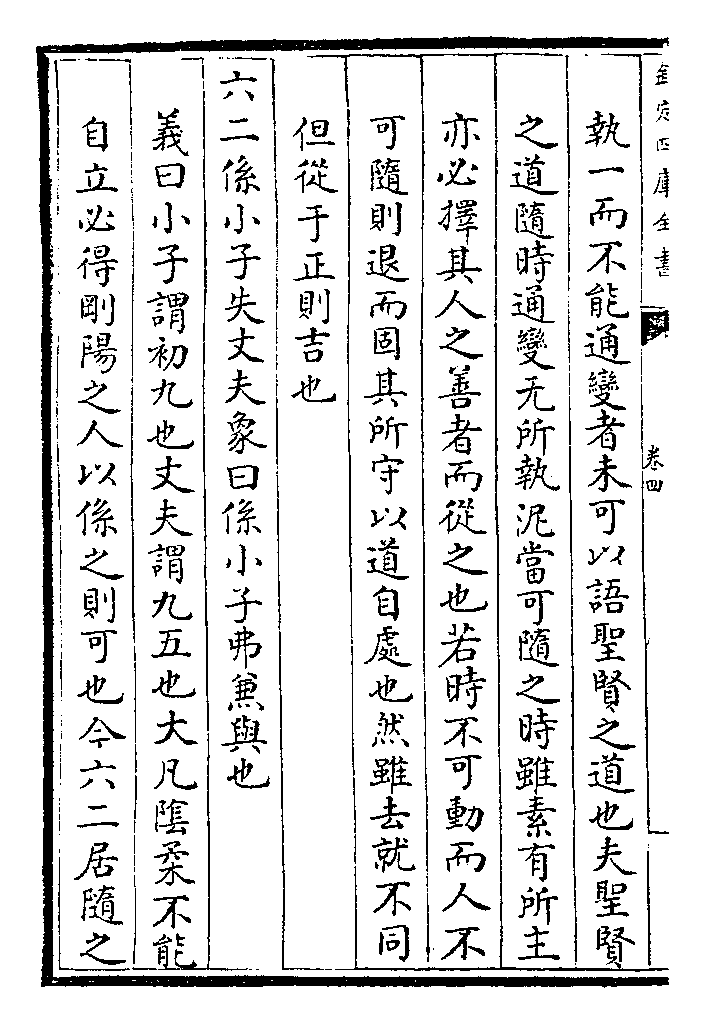 欽定四庫全書
卷四
執一而不能通變者未可以語聖賢之道也夫聖賢
之道隨時通變无所執泥當可隨之時雖素有所主
亦必擇其人之善者而從之也若時不可動而人不
可隨則退而固其所守以道自處也然雖去就不同
但從于正則吉也
六二係小子失丈夫象曰係小子弗兼與也
義曰小子謂初九也丈夫謂九五也大凡隂柔不能
自立必得剛陽之人以係之則可也今六二居隨之